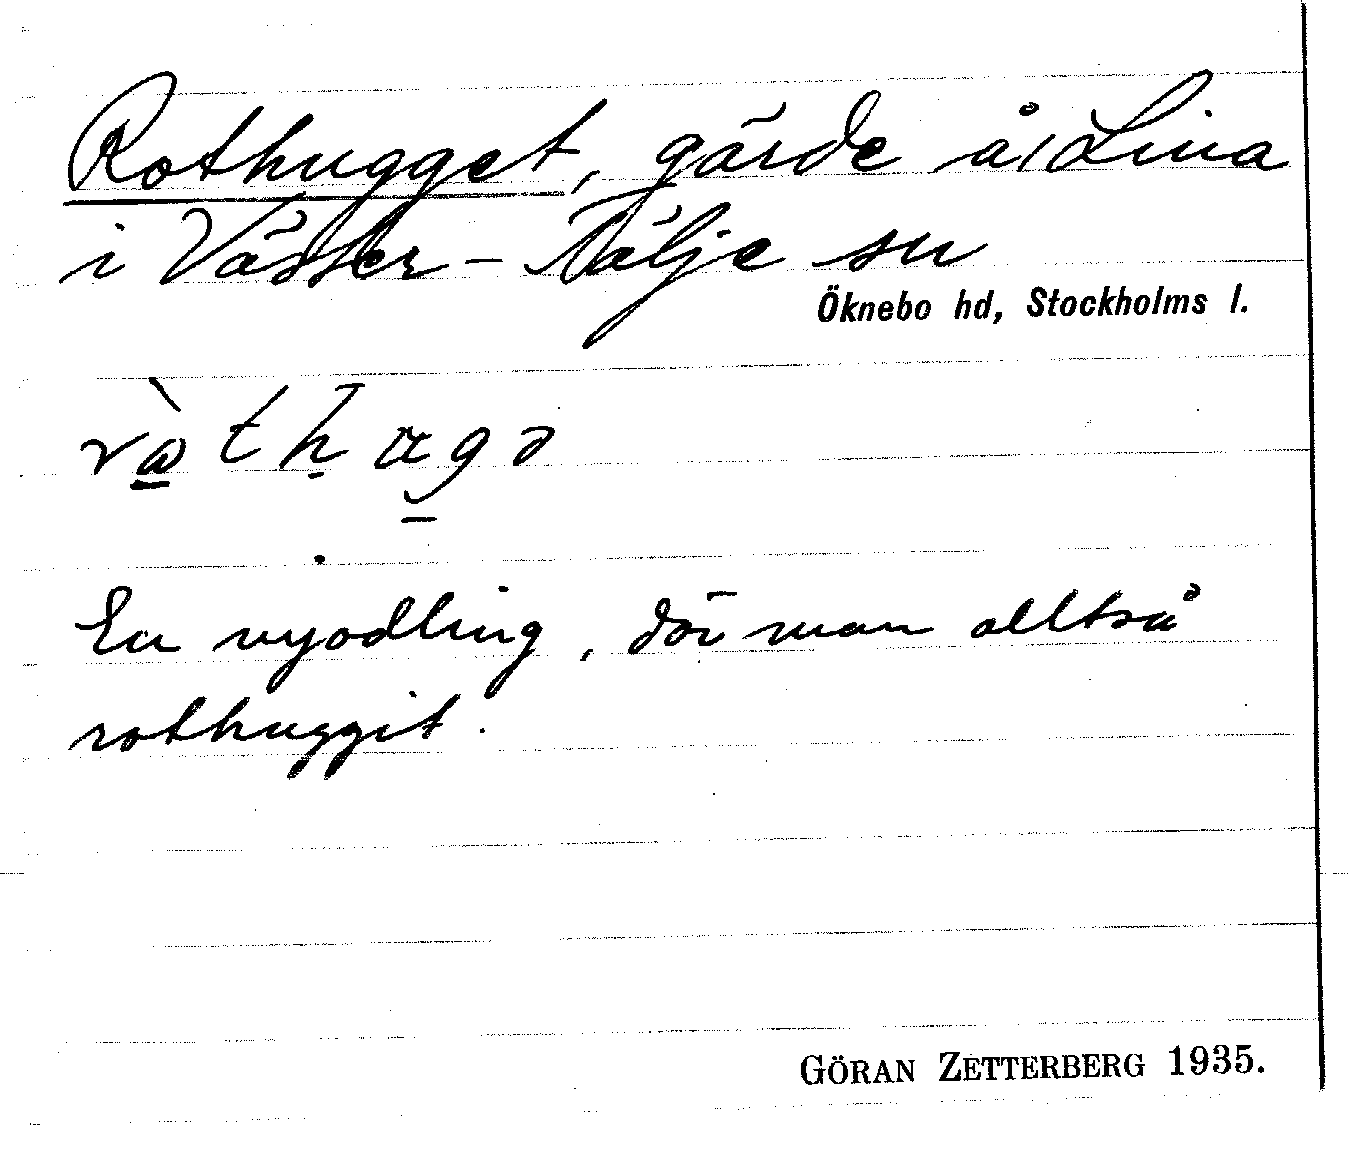 Rothugget, gärde å/Lina
i Väster-Tälje sn
Öknebo hd, Stockholms l.
En nyodling, där man alltså
rothuggit.
GÖRAN ZETTERBERG 1935.